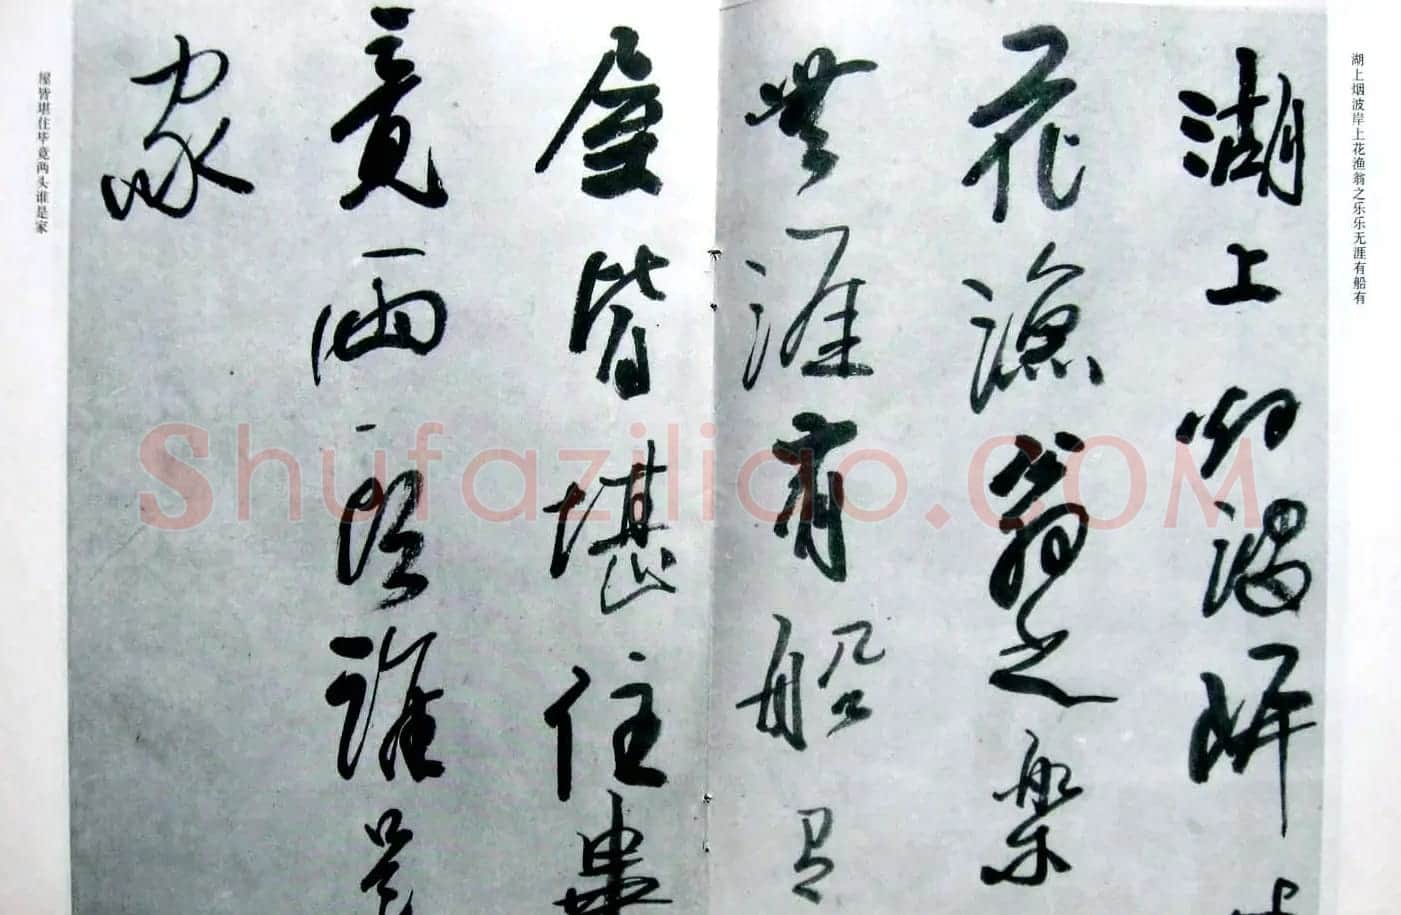 湖上烟波岸上花渔翁之乐乐无涯有船有
湖上
花漁翁之樂
無涯有船有
屋皆堪住畢
竟兩頭誰是
家
屋皆堪住毕竟两头谁是家
Shufaziliao.COM